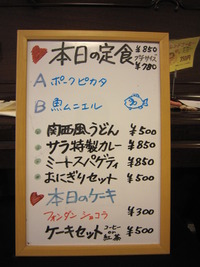 本日の定食 ¥850
プチサイズ ¥780
A ポークピカタ
B 魚ムニエル
関西風うどん ¥500
サラ特製カレー ¥850
ミートスパゲティ ¥850
おにぎりセット ¥500
本日のケーキ
フォンダンショコラ ¥300
ケーキセット コーヒー or 紅茶 ¥500